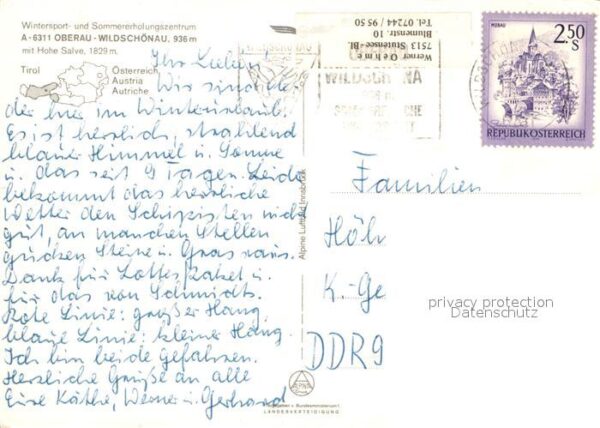 Wintersport- und Sommererholungszentrum
A-6311 OBERAU-WILDSCHÖNAU, 936 m
mit Hohe Salve, 1829 m.
Tirol
Österreich
Austria
Autriche
Ihr Lieben!
Wir sind
der hier im Winterurlaub.
Es ist herrlich, strahlend
blauer Himmel u. Sonne
u. das seit 9 Tagen. Leider
bekommt das herrliche
Wetter den Schipisten nicht
gut, an manchen Stellen
gucken Steine u. Gras raus.
Dank für Lottes Paket u.
für das von Schmidts.
Rote Linie: großer Hang,
blaue Linie: kleiner Hang.
Ich bin beide gefahren.
Herzliche Grüße an alle
Eure Käthe, Werner u. Gerhard
Alpine Luftbild Innsbruck
ALPINA
LANDESVERTEIDIGUNG
Werner Oehme
Blumenstr. 10
7513 Stutensee-Bl.
Tel. 07244 / 95 50
WILDSCHÖNAU
MURAU
2.50
S
REPUBLIK ÖSTERREICH
Familien
Höhl
K-Ge
DDR 9
privacy protection
Datenschutz